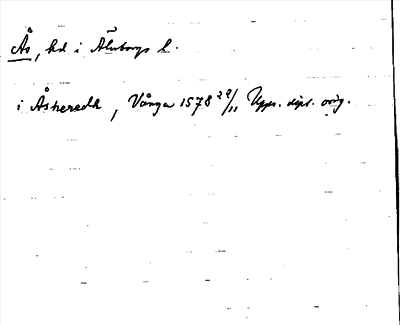 Ås, hd i Älvborgs l.
i Åsheredh, Vånga 1578 29/11 Upps. dipl. orig.